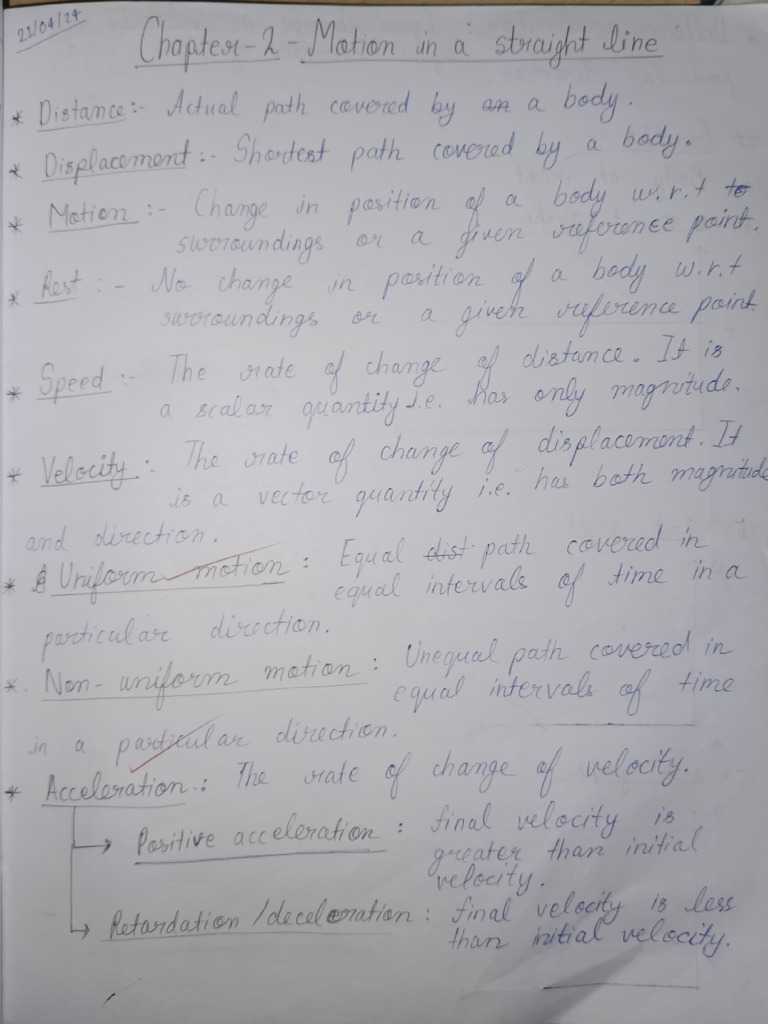 21/04/24
Chapter-2 - Motion in a straight line
* Distance:- Actual path covered by an a body.
* Displacement:- Shortest path covered by a body.
* Motion:- Change in position of a body w.r.t to
surroundings or a given reference point.
* Rest:- No change in position of a body w.r.t
surroundings or a given reference point
* Speed:- The rate of change of distance. It is
a scalar quantity i.e. has only magnitude.
* Velocity: The rate of change of displacement. It
is a vector quantity i.e. has both magnitude
and direction.
* Uniform motion: Equal dist path covered in
equal intervals of time in a
particular direction.
* Non-uniform motion: Unequal path covered in
equal intervals of time
in a particular direction.
* Acceleration: The rate of change of velocity.
→ Positive acceleration: final velocity is
greater than initial
velocity.
→ Retardation/deceleration: final velocity is less
than initial velocity.